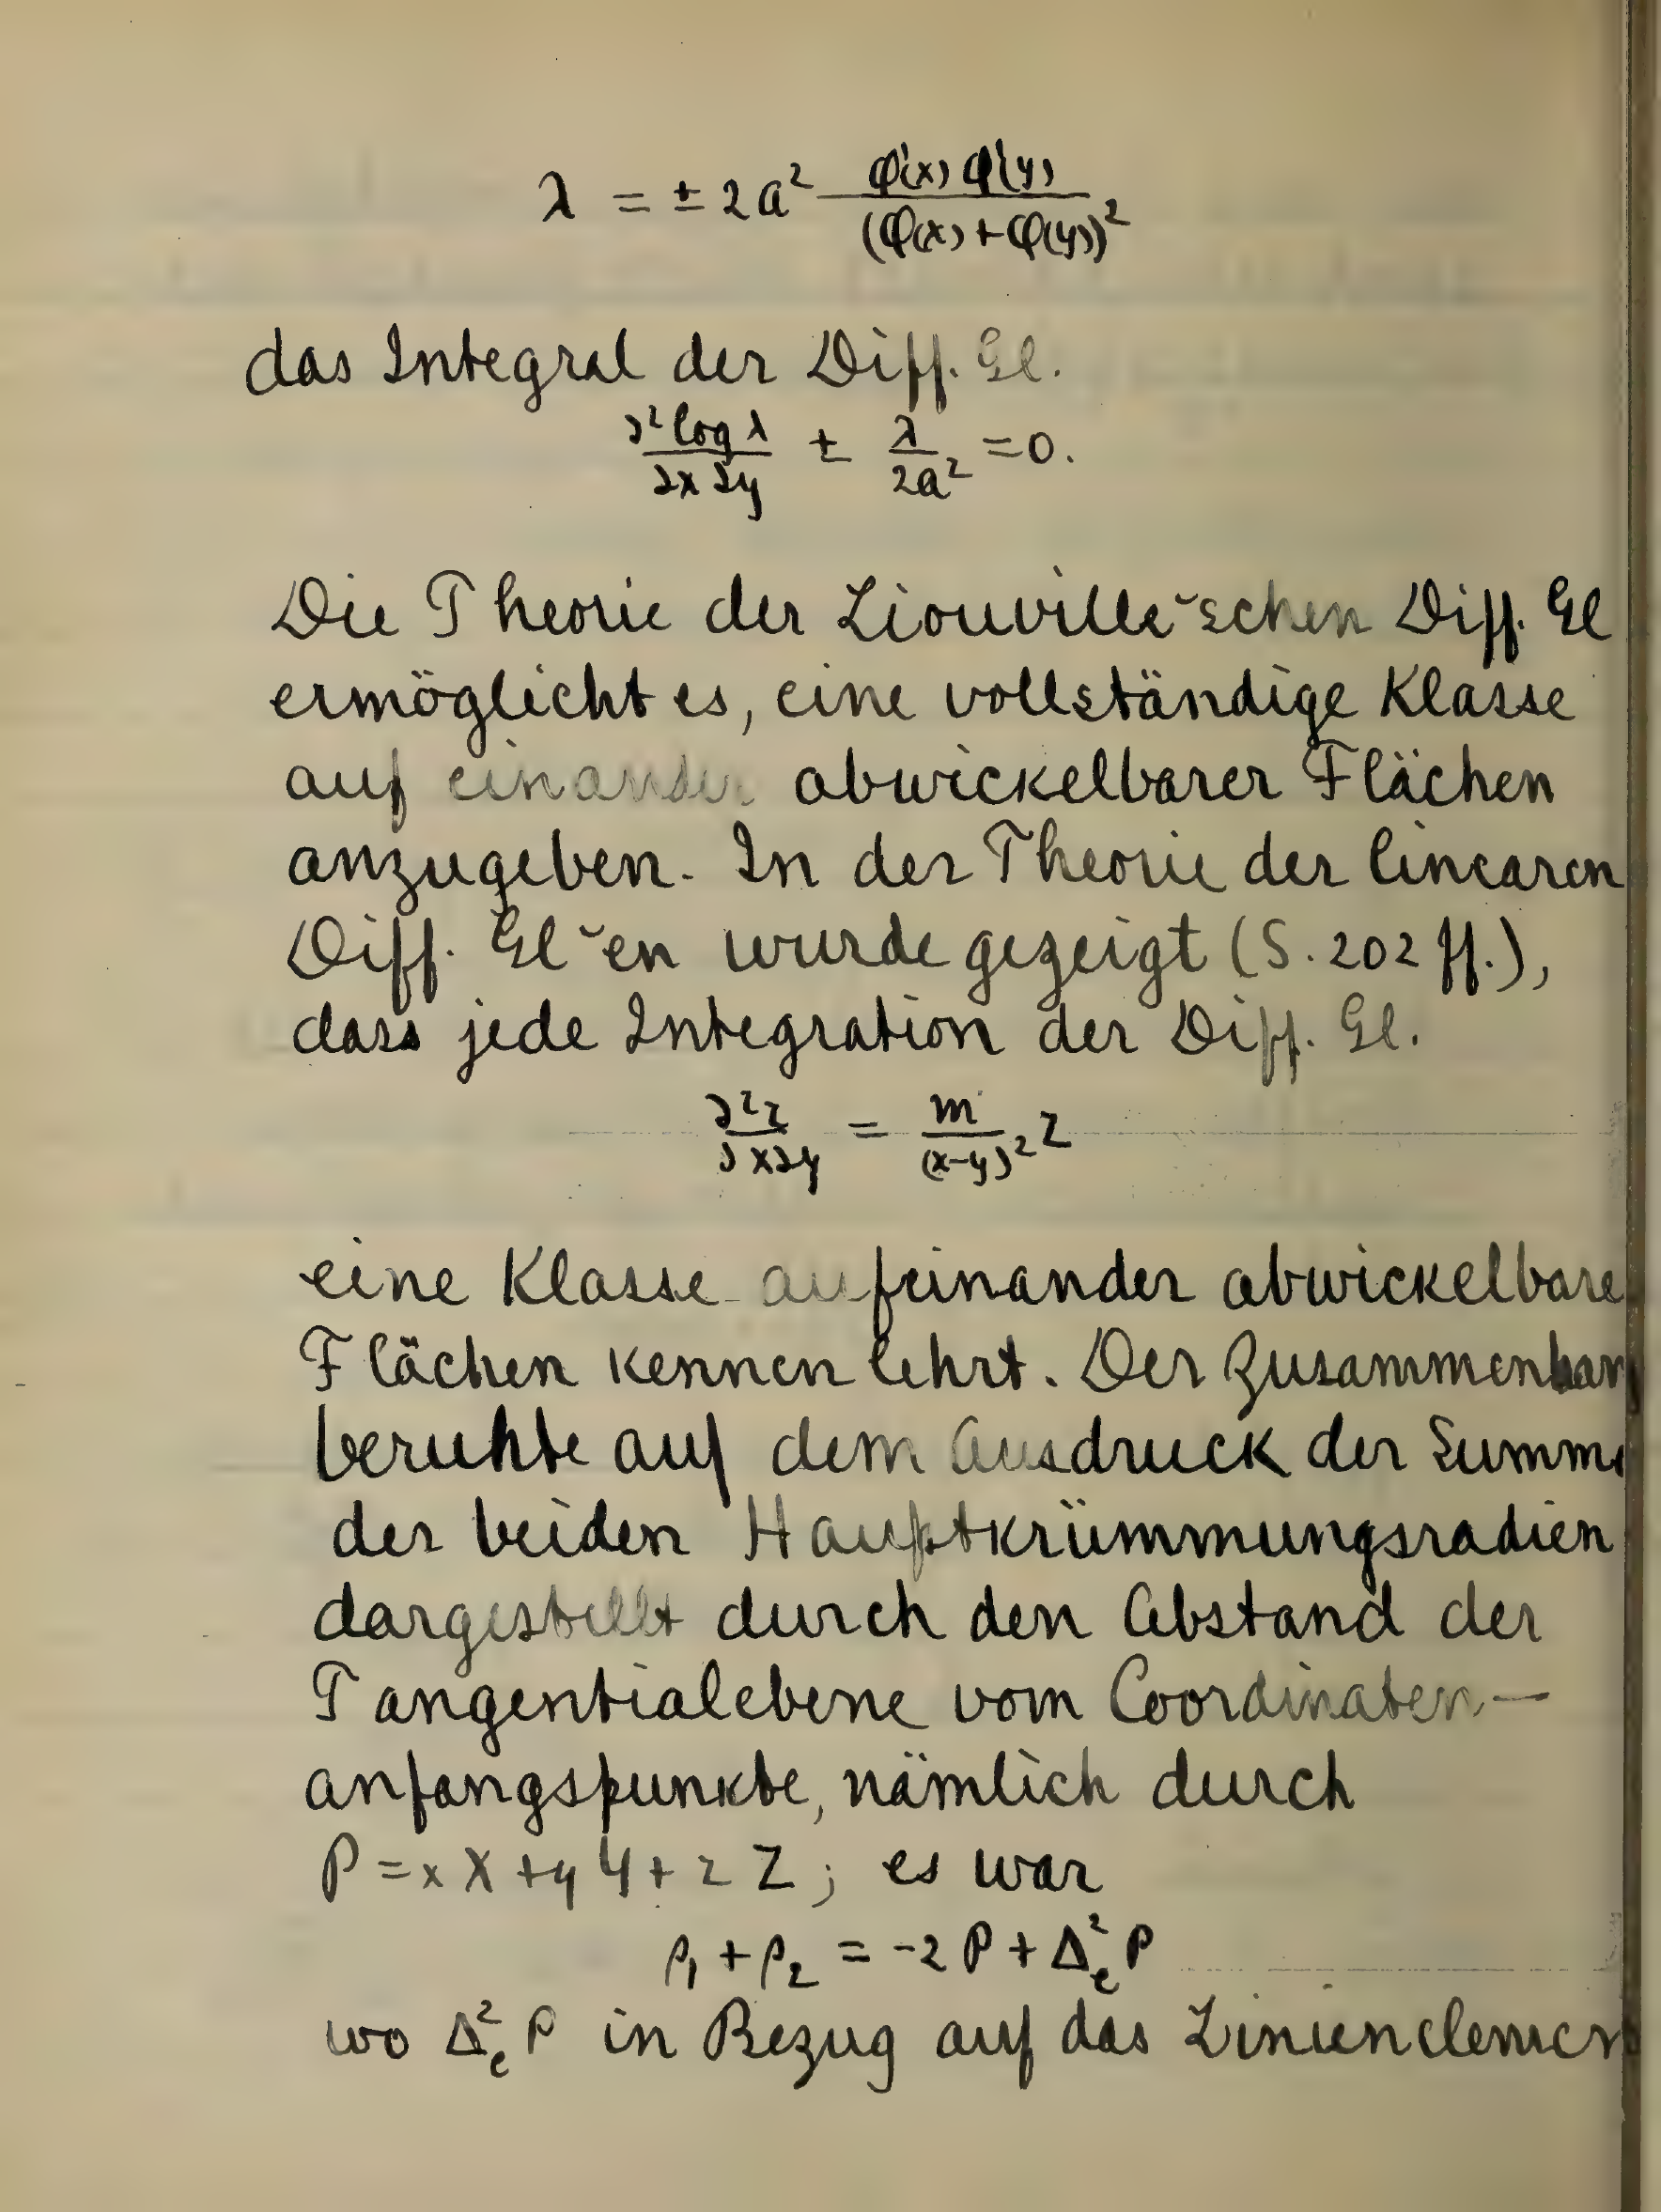 λ = ± 2a² φ'(x) φ'(y) / (φ(x) + φ(y))²
das Integral der Diff. Gl.
∂² log λ / ∂x ∂y ± λ / 2a² = 0.
Die Theorie der Liouville'schen Diff. Gl
ermöglicht es, eine vollständige Klasse
auf einander abwickelbarer Flächen
anzugeben. In der Theorie der linearen
Diff. Gl'en wurde gezeigt (S. 202 ff.),
dass jede Integration der Diff. Gl.
∂²z / ∂x∂y = m / (x-y)² z
eine Klasse aufeinander abwickelbare
Flächen kennen lehrt. Der Zusammenhan
beruhte auf dem Ausdruck der Summe
der beiden Hauptkrümmungsradien
dargestellt durch den Abstand der
Tangentialebene vom Coordinaten-
anfangspunkte, nämlich durch
P = xX + yY + zZ; es war
ρ₁ + ρ₂ = -2P + Δ²ₑP
wo Δ²ₑP in Bezug auf das Linienelemen